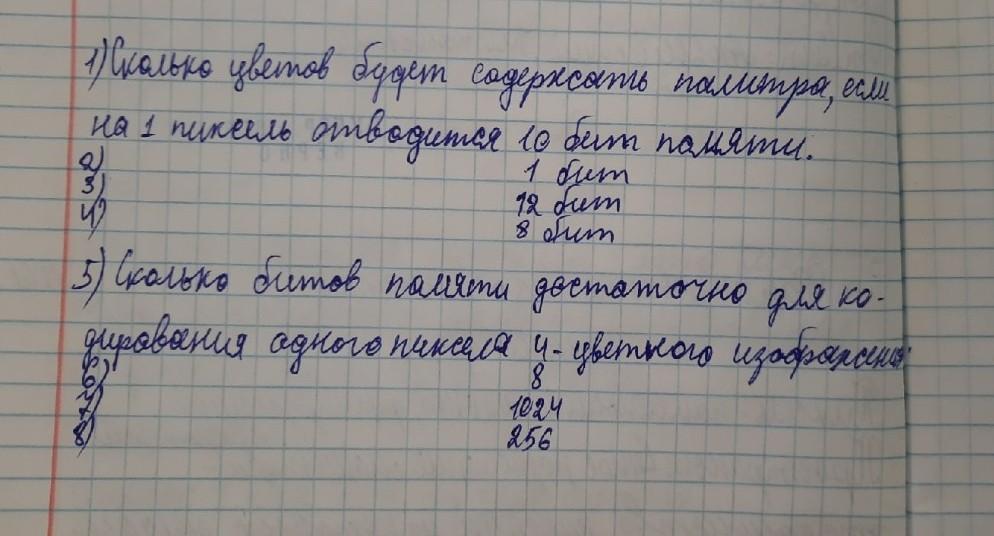 1) Сколько цветов будет содержать палитра, если
на 1 пиксель отводится 10 бит памяти.
2) 1 бит
3) 12 бит
4) 8 бит
5) Сколько битов памяти достаточно для ко-
дирования одного пиксела 4-цветного изображения
6) 8
7) 1024
8) 256